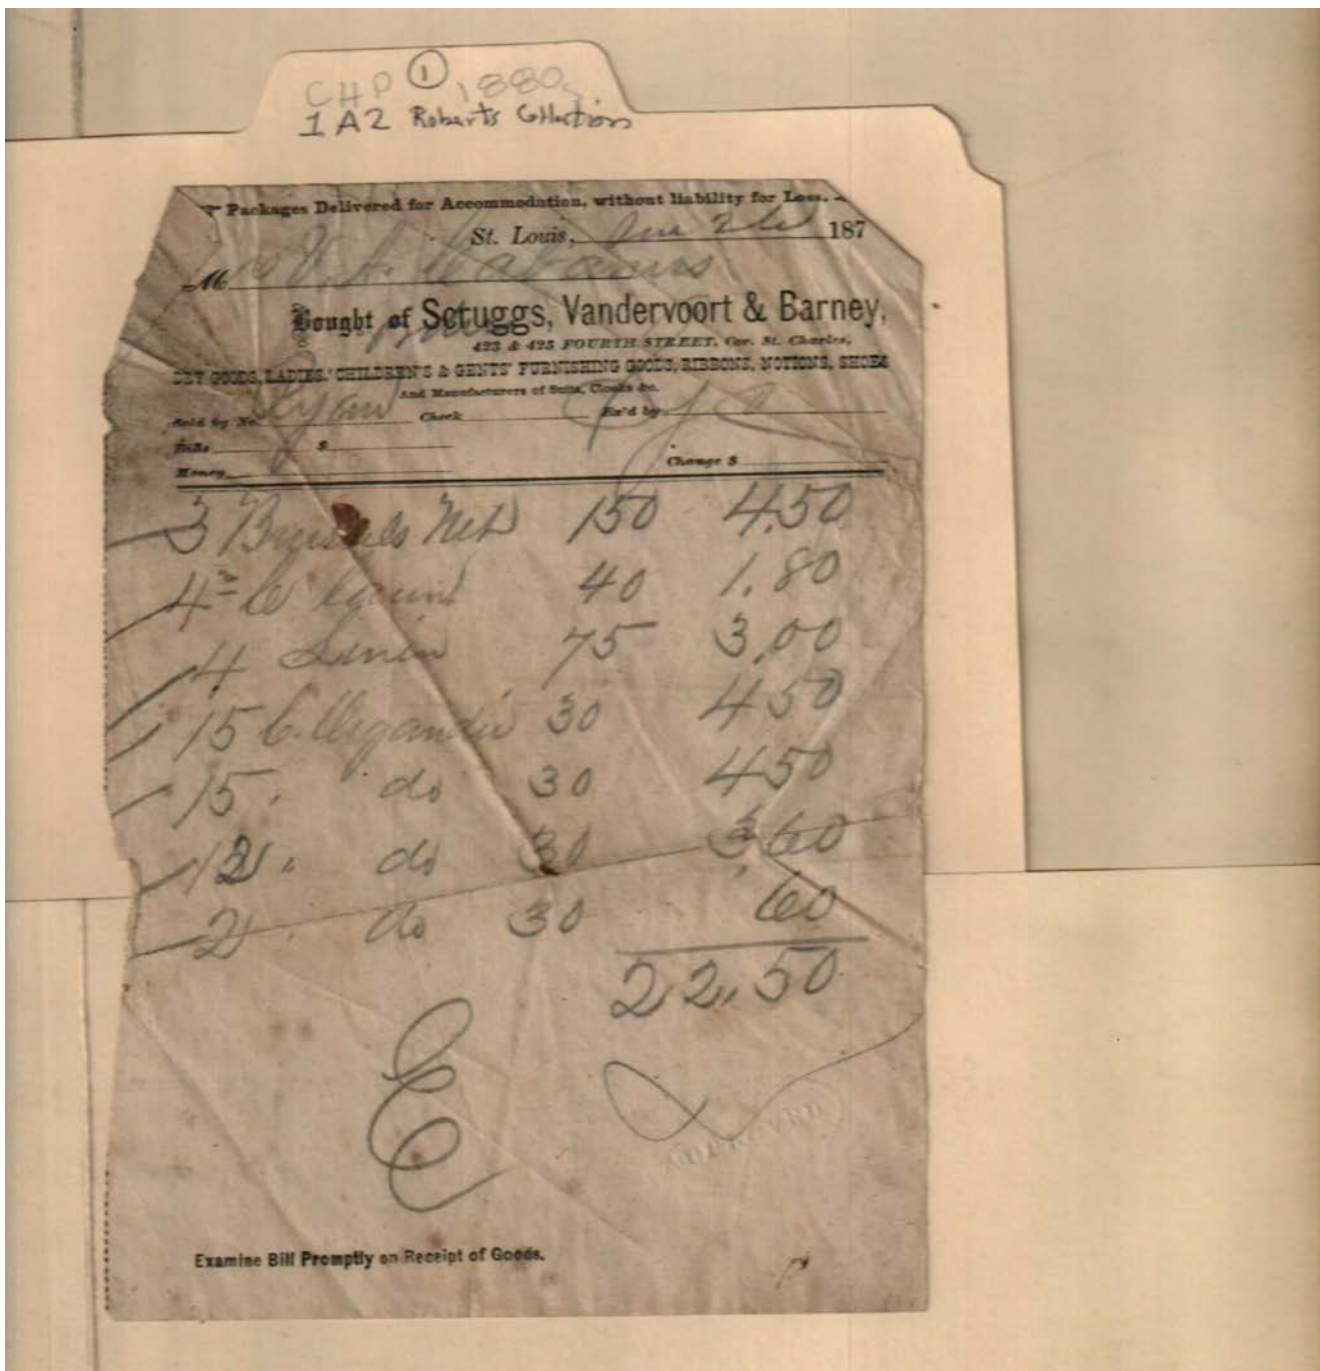 CHP ① 1880s
1A2 Roberts Collection
Packages Delivered for Accommodation, without liability for Loss.
St. Louis, 187
M
Bought of Scruggs, Vandervoort & Barney,
423 & 425 FOURTH STREET, Cor. St. Charles,
DRY GOODS, LADIES,' CHILDREN'S & GENTS' FURNISHING GOODS, RIBBONS, NOTIONS, SHOES
And Manufacturers of Suits, Cloaks &c.
Sold by No. Ryan Check Ex'd by
Bills $
Money Change $
3 Brussels Net 150 4.50
4 40 1.80
4 Linen 75 3.00
15 C. Organdie 30 4 50
15. do 30 4 50
12. do 30 3.60
2. do 30 60
22.50
APPROVED
Examine Bill Promptly on Receipt of Goods.